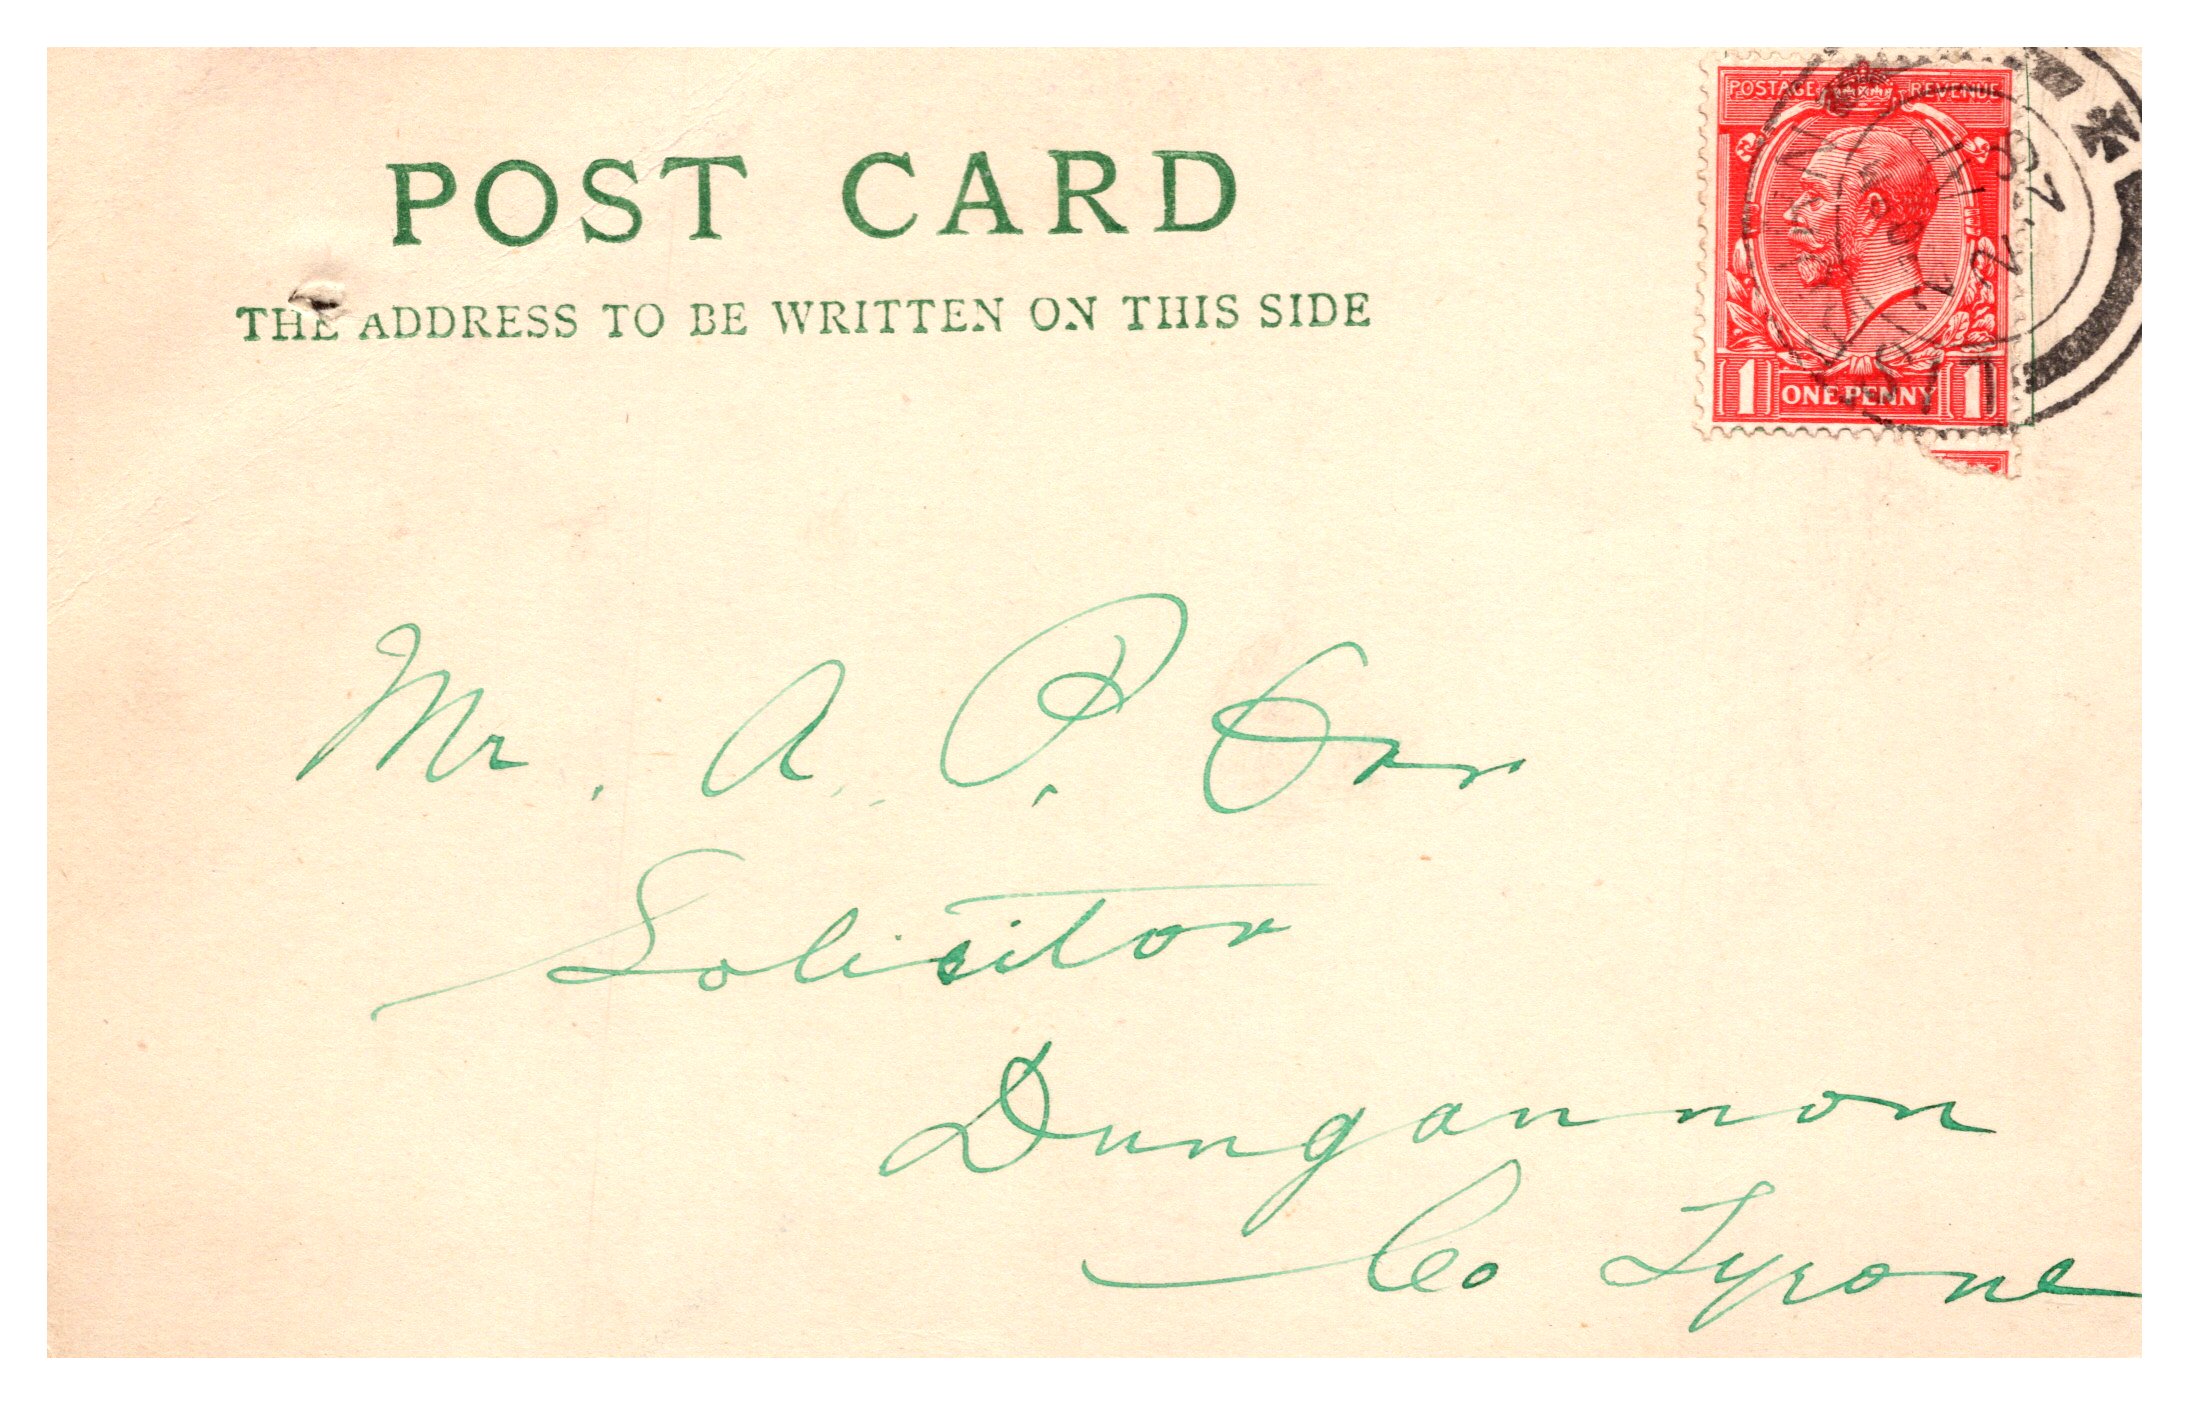 POST CARD
THE ADDRESS TO BE WRITTEN ON THIS SIDE
POSTAGE REVENUE
1 ONE PENNY 1
Mr. A. P. Orr
Solicitor
Dungannon
Co Tyrone